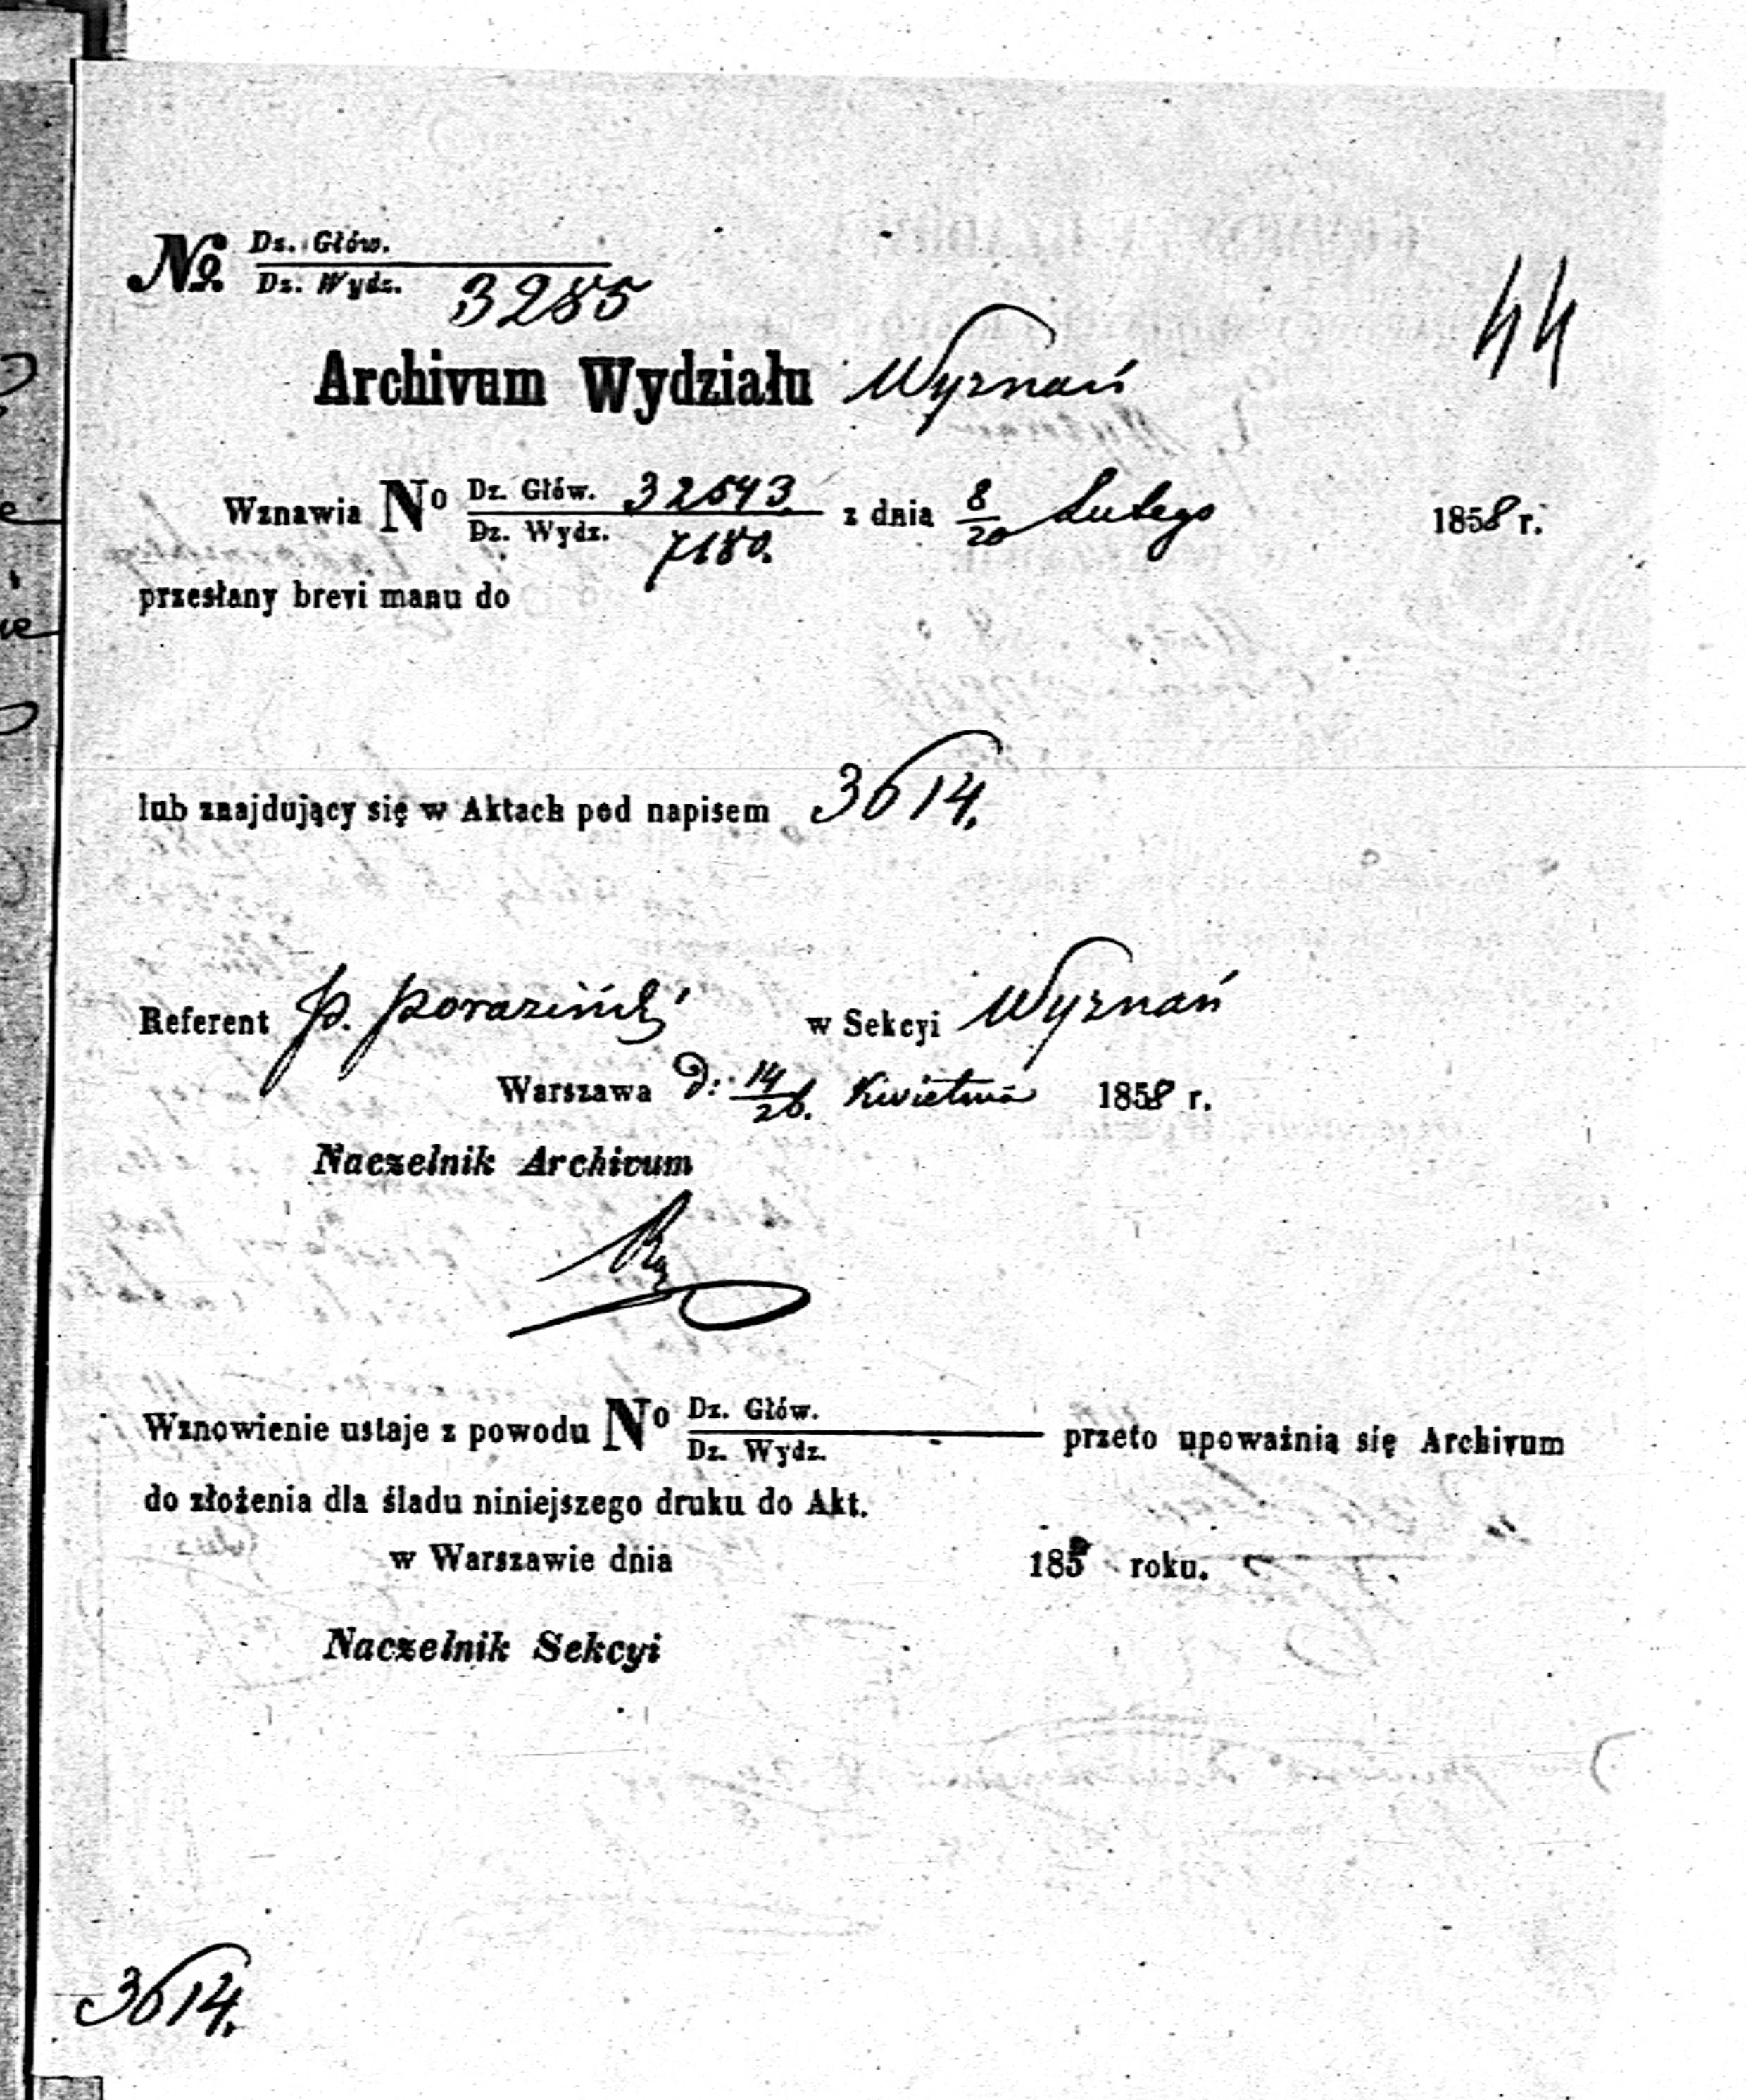 44
No. Dz. Głów.
Dz. Wydz. 3285
Archivum Wydziału Wyznań
Wznawia No Dz. Głów. 32543. z dnia 8/20 Lutego 1858 r.
Dz. Wydz. 7180.
przesłany brevi manu do
lub znajdujący się w Aktach pod napisem 3614.
Referent P. Poraziński w Sekcyi Wyznań
Warszawa D: 14/26. Kwietnia 1858 r.
Naczelnik Archivum
Wznowienie ustaje z powodu No Dz. Głów. przeto upoważnia się Archivum
Dz. Wydz.
do złożenia dla śladu niniejszego druku do Akt.
w Warszawie dnia 185 roku.
Naczelnik Sekcyi
3614.